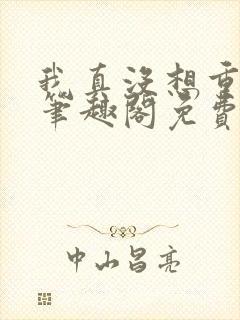 我真没想重
笔趣阁免费
中山昌亮